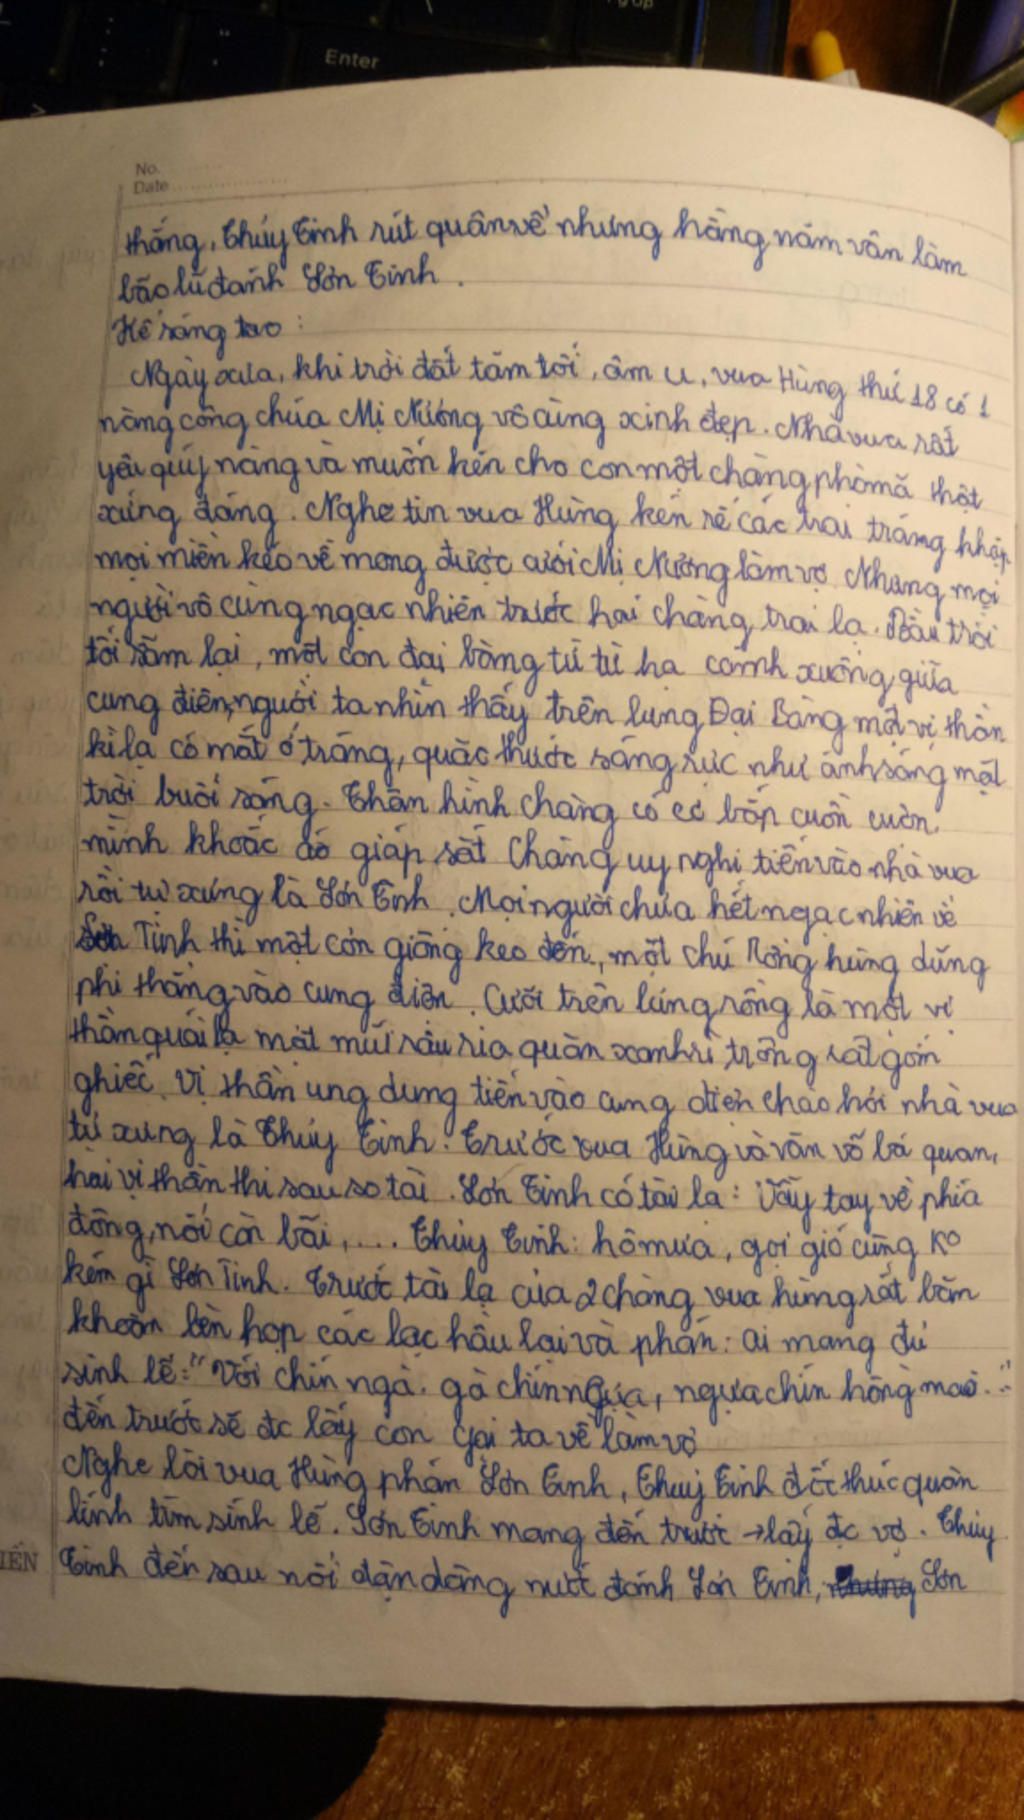 Enter
No.
Date
thắng, Thủy Tinh rút quân về nhưng hằng năm vẫn làm
bão lũ đánh Sơn Tinh.
Kể sáng tạo:
Ngày xưa, khi trời đất tăm tối, âm u, vua Hùng thứ 18 có 1
nàng công chúa Mị Nương vô cùng xinh đẹp. Nhà vua rất
yêu quý nàng và muốn kén cho con một chàng phò mã thật
xứng đáng. Nghe tin vua Hùng kén rể các trai tráng khắp
mọi miền kéo về mong được cưới Mị Nương làm vợ. Nhưng mọi
người vô cùng ngạc nhiên trước hai chàng trai lạ. Bầu trời
tối sầm lại, một con đại bàng từ từ hạ cánh xuống giữa
cung điện, người ta nhìn thấy trên lưng Đại Bàng một vị thần
kì lạ có mắt ở tráng, quắc thước sáng rực như ánh sáng mặt
trời buổi sáng. Thân hình chàng có cơ bắp cuồn cuộn,
mình khoắc áo giáp sắt Chàng uy nghi tiến vào nhà vua
rồi tự xưng là Sơn Tinh. Mọi người chưa hết ngạc nhiên về
Sơn Tinh thì một cơn giông kéo đến, một chú Rồng hùng dũng
phi thẳng vào cung điện. Cưỡi trên lưng rồng là một vị
thần quái lạ mặt mũi râu ria quăn xanh rì trông rất gớm
ghiếc. Vị thần ung dung tiến vào cung điện chào hỏi nhà vua
tự xưng là Thủy Tinh. Trước vua Hùng và văn võ bá quan,
hai vị thần thi sau so tài. Sơn Tinh có tài lạ: Vẫy tay về phía
đông, nổi cồn bãi,.... Thủy Tinh: hô mưa, gọi gió cũng ko
kém gì Sơn Tinh. Trước tài lạ của 2 chàng vua hùng rất băn
khoăn bèn họp các lạc hầu lại và phán: ai mang đủ
sính lễ: "Voi chín ngà, gà chín cựa, ngựa chín hồng mao..."
đến trước sẽ đc lấy con gái ta về làm vợ
Nghe lời vua Hùng phán Sơn Tinh, Thuỷ Tinh đốc thúc quân
lính tìm sính lễ. Sơn Tinh mang đến trước → lấy đc vợ. Thủy
IẾN
Tinh đến sau nổi dận dâng nước đánh Sơn Tinh, Sơn